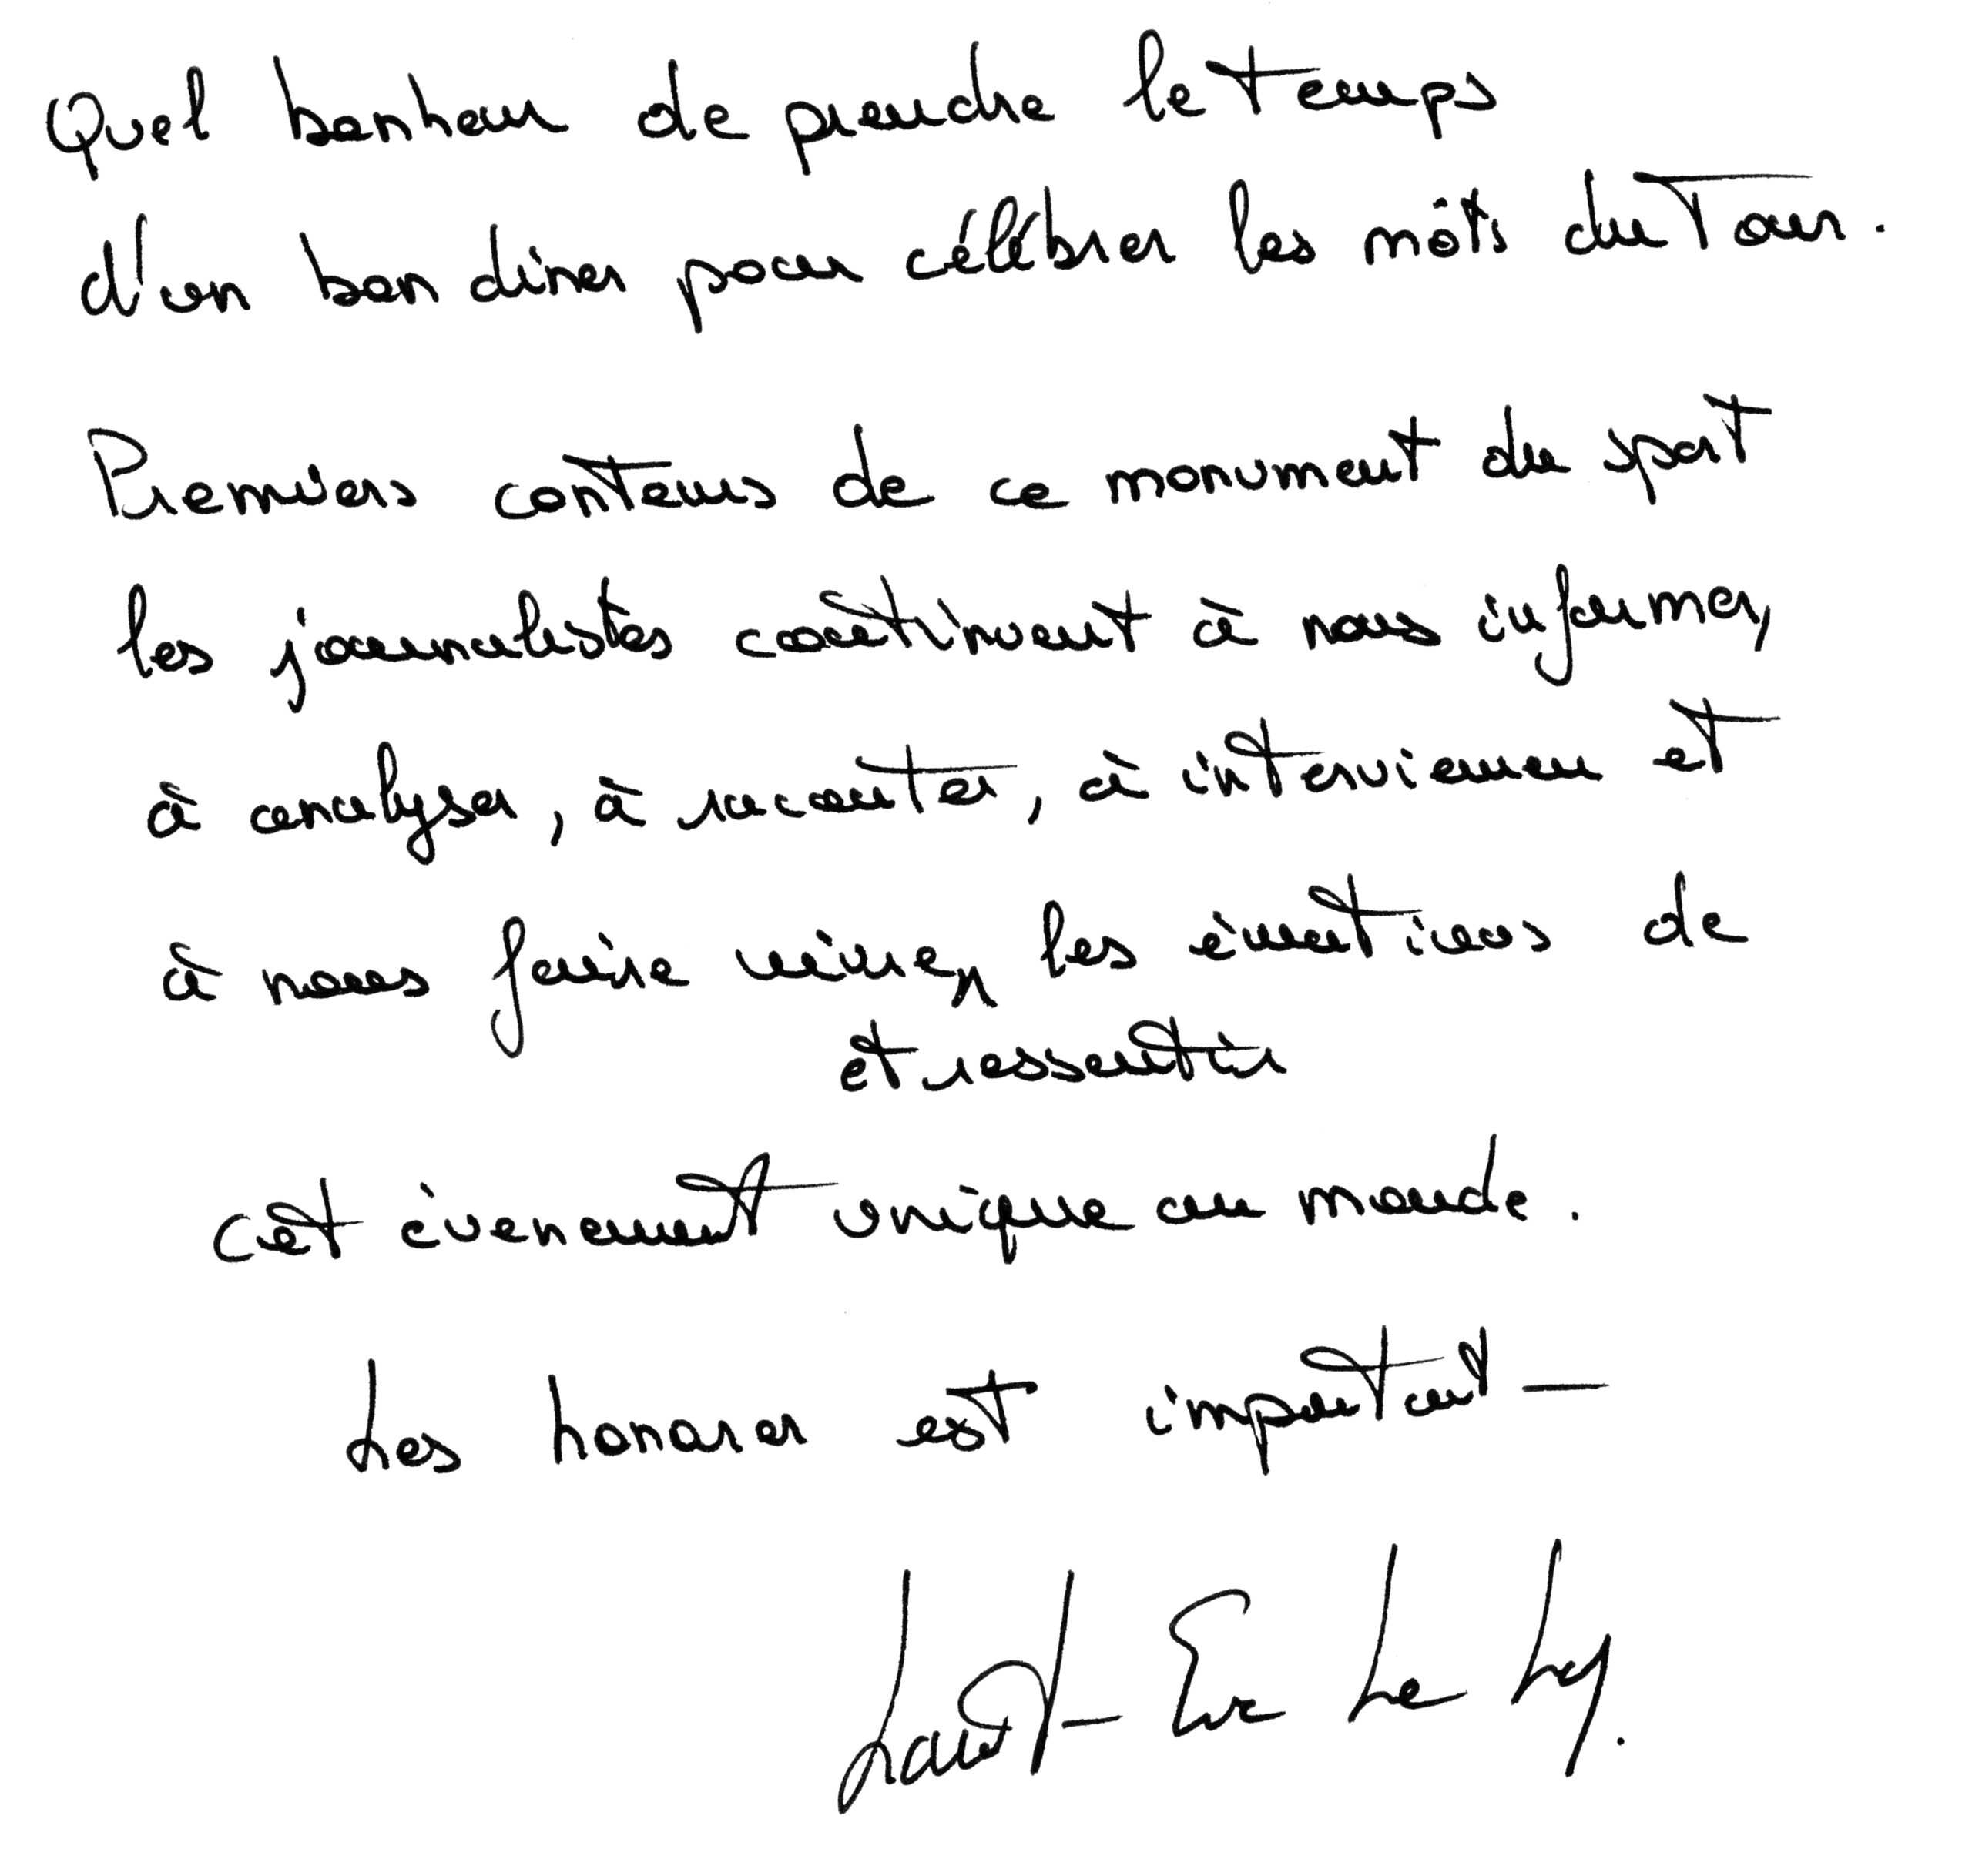 Quel bonheur de prendre le temps
d'un bon dîner pour célébrer les mots du Tour.
Premiers conteurs de ce monument du sport
les journalistes continuent à nous informer,
à analyser, à raconter, à interviewer et
à nous faire vivre, les émotions de
et ressentir
cet évenement unique au monde.
Les honorer est important -
Laurent-Eric Le Lay.